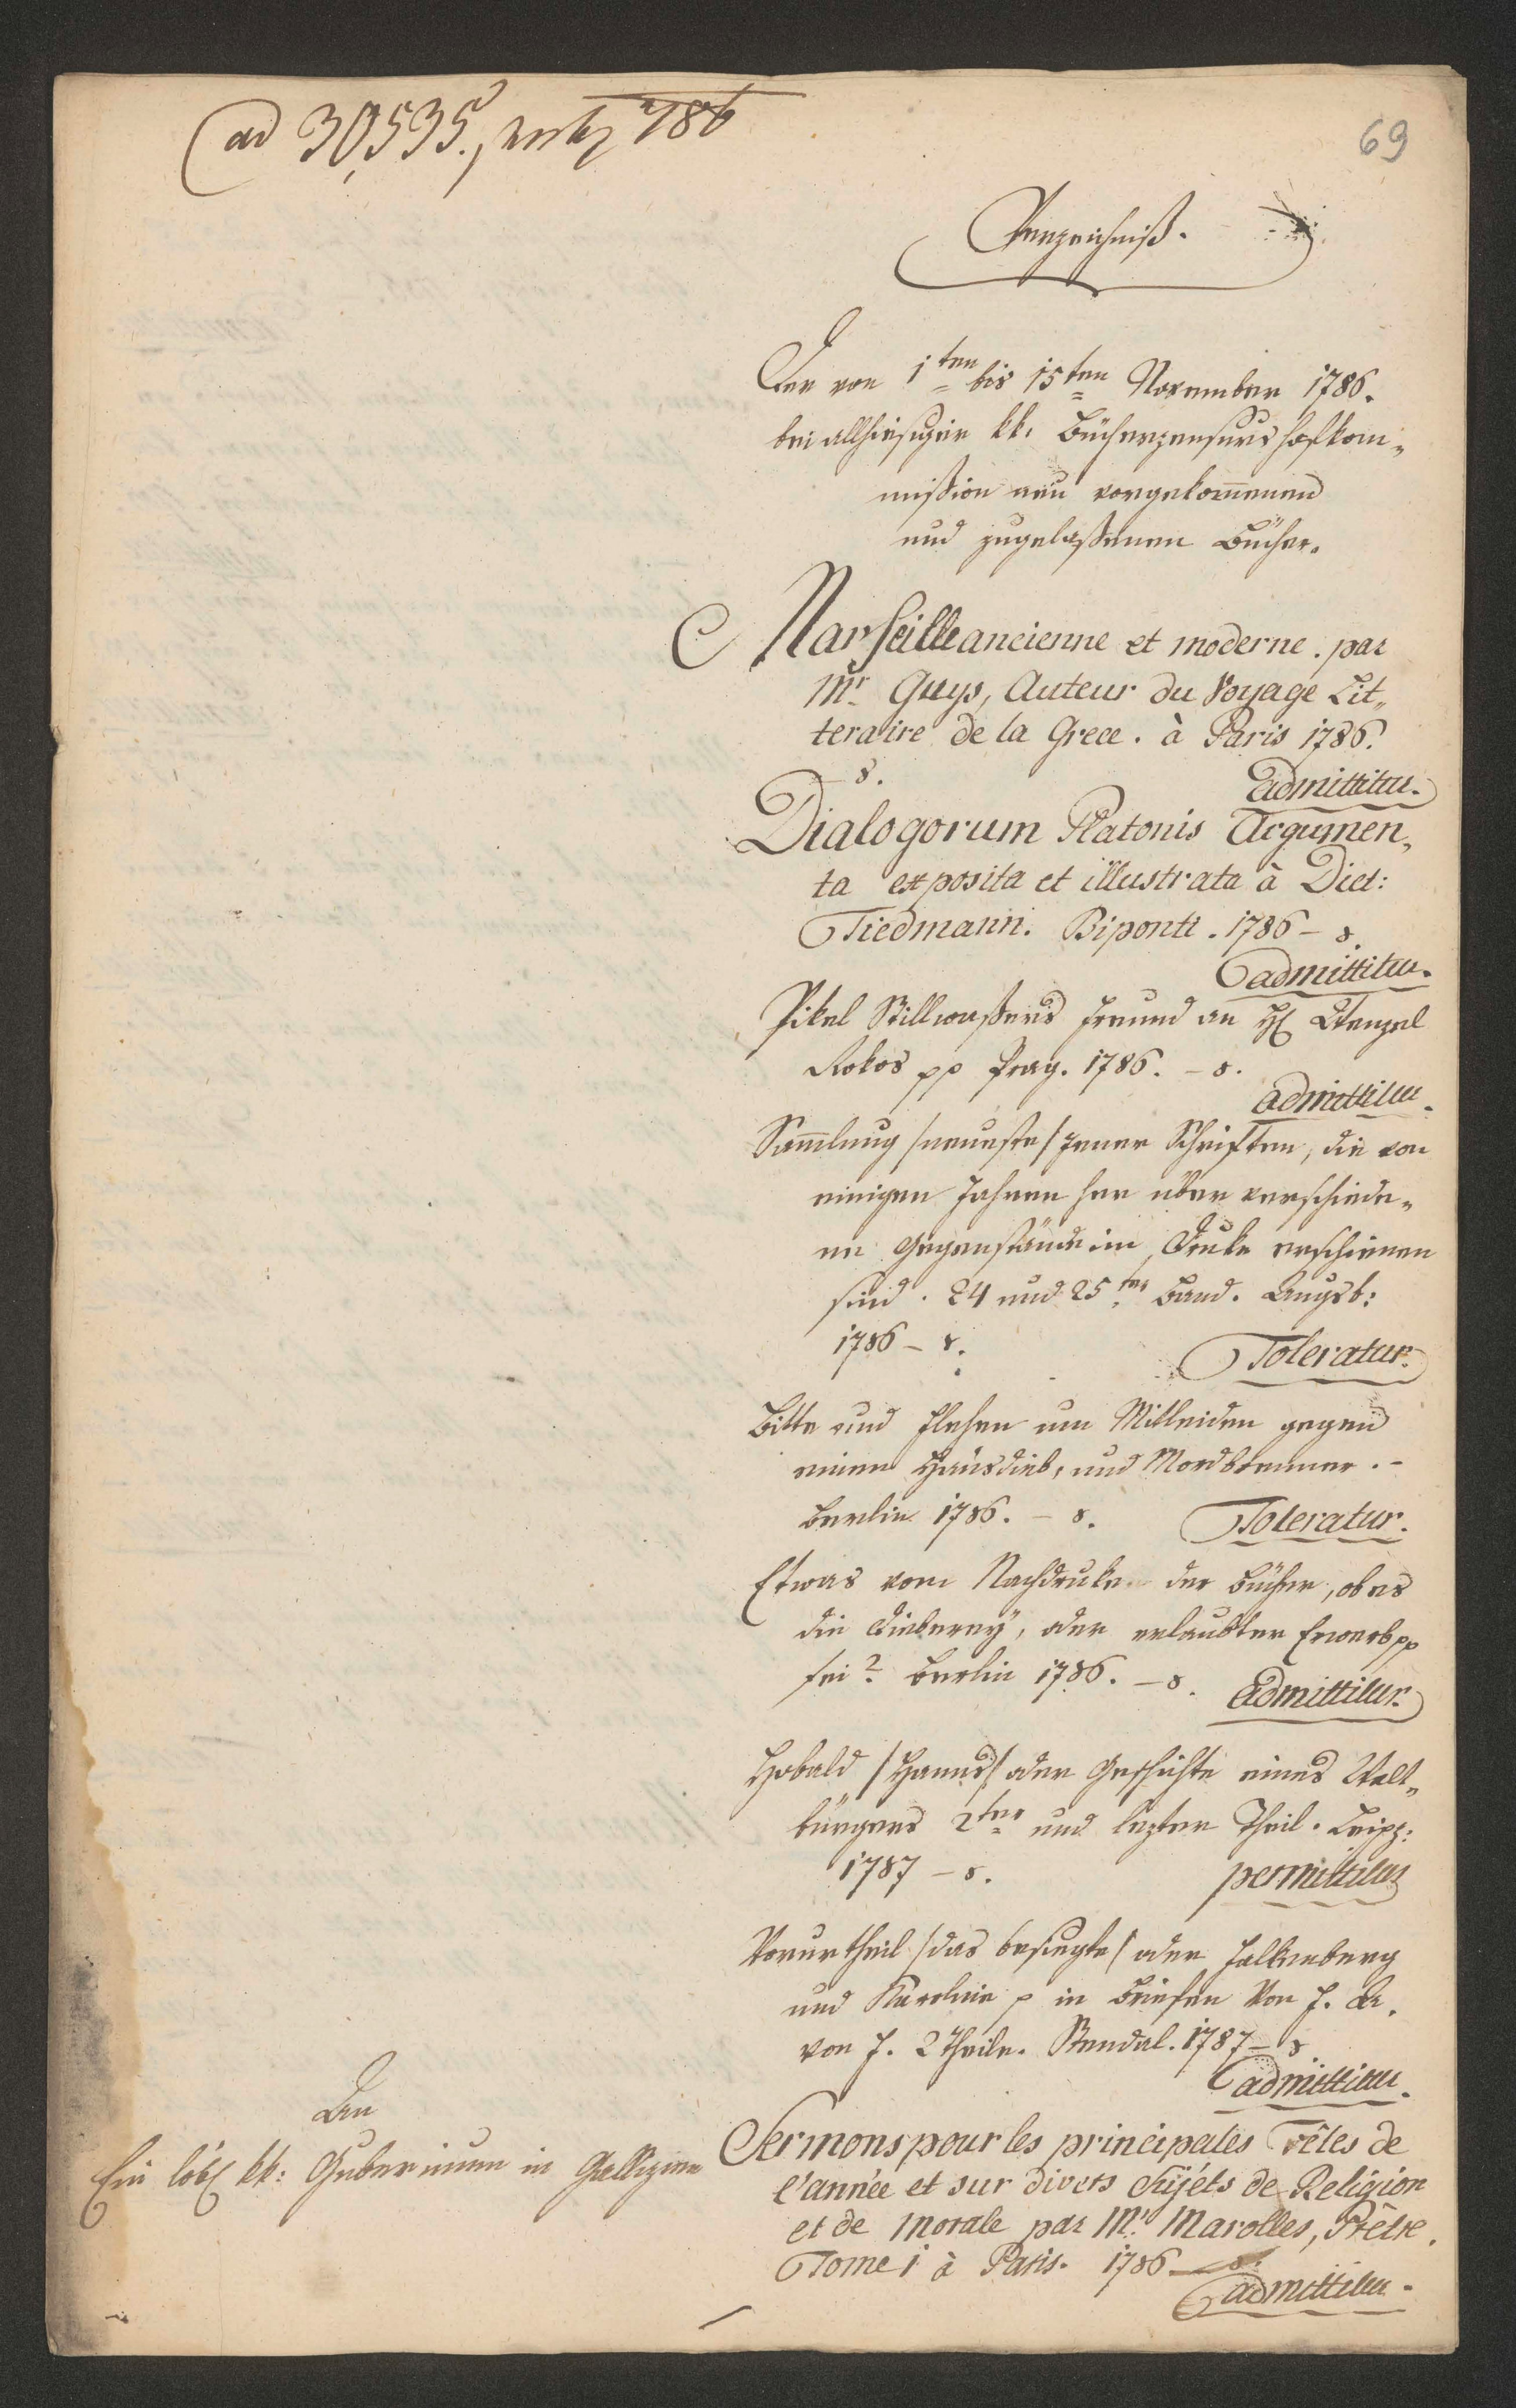 ad 30,535, 786
69
Verzeichniß.
Der von 1ten bis 15ten November 1786.
bei allhiesigen kk. Bücherzensurs Hofkom„
mißion neu vorgekom̄enen
und zugelaßenen Bücher.
Marseille ancienne et moderne. par
Mr. Guys, Auteur du Voyage Lit„
teraire de la Grece. à Paris 1786.
8. admittitur.
Dialogorum Platonis Argumen„
ta exposita et illustrata à Diet:
Tiedmann. Biponti. 1786 – 8.
admittitur.
Pikel Stillwaßers Freund an H. Wenzel
Rokos pp Prag. 1786. – 8.
admittitur.
Sam̄lung /neueste/ jener Schriften, die von
einigen Jahren her über verschiede„
ne Gegenstände im Druke erschienen
sind. 24 und 25ter Band. Augsb:
1786 – 8. Toleratur.
Bitte und Flehen um Mitleiden gegen
einen Hausdieb, und Mordbrenner. –
Berlin 1786. – 8. Toleratur.
Etwas vom Nachdruke der Bücher, ob es
die Dieberey, oder erlaubter Erwerb pp
sei? Berlin 1786. – 8. admittitur.
Hobald /Hanns/ oder Geschichte eines Welt„
bürgers 2ter und lezter Theil. Leipz:
1787 – 8. permittitur
Vorurtheil /das besiegte/ oder Falkenberg
und Karoline p in Briefen Von J. A.
von J. 2 Theile. Stendal. 1787 – 8
admittitur.
Sermons pour les principales Fêtes de
l'année et sur divers Sujéts de Religion
et de Morale par Mr. Marolles, Prêtre.
Tome 1 à Paris. 1786 – 8.
admittitur.
An
Ein löbl kk: Gubernium in Gallizien